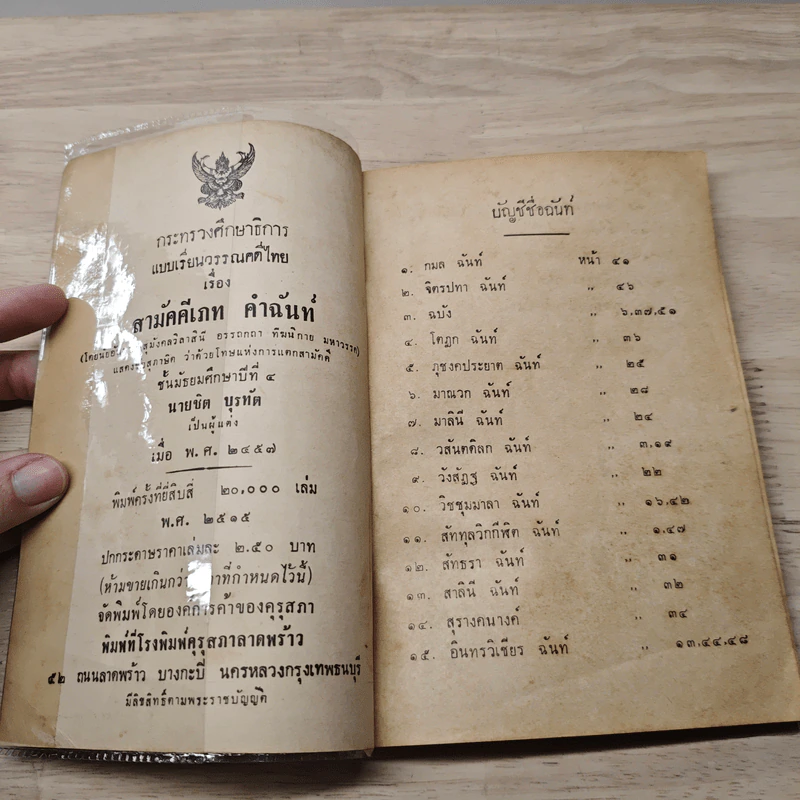 กระทรวงศึกษาธิการ
แบบเรียนวรรณคดีไทย
เรื่อง
สามัคคีเภท คำฉันท์
สุมังคลวิลาสินี อรรถกถา ทีฆนิกาย มหาวรรค)
สุภาษิต ว่าด้วยโทษแห่งการแตกสามัคคี
ชั้นมัธยมศึกษาปีที่ ๔
นายชิต บุรทัต
เป็นผู้แต่ง
เมื่อ พ.ศ. ๒๔๕๗
พิมพ์ครั้งที่ยี่สิบสี่ ๒๐,๐๐๐ เล่ม
พ.ศ. ๒๕๑๕
ปกกระดาษราคาเล่มละ ๒.๕๐ บาท
(ห้ามขายเกินกว่าราคาที่กำหนดไว้นี้)
จัดพิมพ์โดยองค์การค้าของคุรุสภา
พิมพ์ที่โรงพิมพ์คุรุสภาลาดพร้าว
๕๒ ถนนลาดพร้าว บางกะปิ นครหลวงกรุงเทพธนบุรี
มีลิขสิทธิ์ตามพระราชบัญญัติ
บัญชีชื่อฉันท์
๑. กมล ฉันท์ หน้า ๔๑
๒. จิตรปทา ฉันท์ ,, ๔๖
๓. ฉบัง ,, ๖,๓๗,๕๑
๔. โตฎก ฉันท์ ,, ๓๖
๕. ภุชงคประยาต ฉันท์ ,, ๒๕
๖. มาณวก ฉันท์ ,, ๒๘
๗. มาลินี ฉันท์ ,, ๒๔
๘. วสันตดิลก ฉันท์ ,, ๓,๑๙
๙. วังสัฏฐ ฉันท์ ,, ๒๒
๑๐. วิชชุมมาลา ฉันท์ ,, ๑๖,๔๒
๑๑. สัททุลวิกกีฬิต ฉันท์ ,, ๑,๔๗
๑๒. สัทธรา ฉันท์ ,, ๓๑
๑๓. สาลินี ฉันท์ ,, ๓๒
๑๔. สุรางคนางค์ ,, ๓๔
๑๕. อินทรวิเชียร ฉันท์ ,, ๑๓,๔๔,๔๘